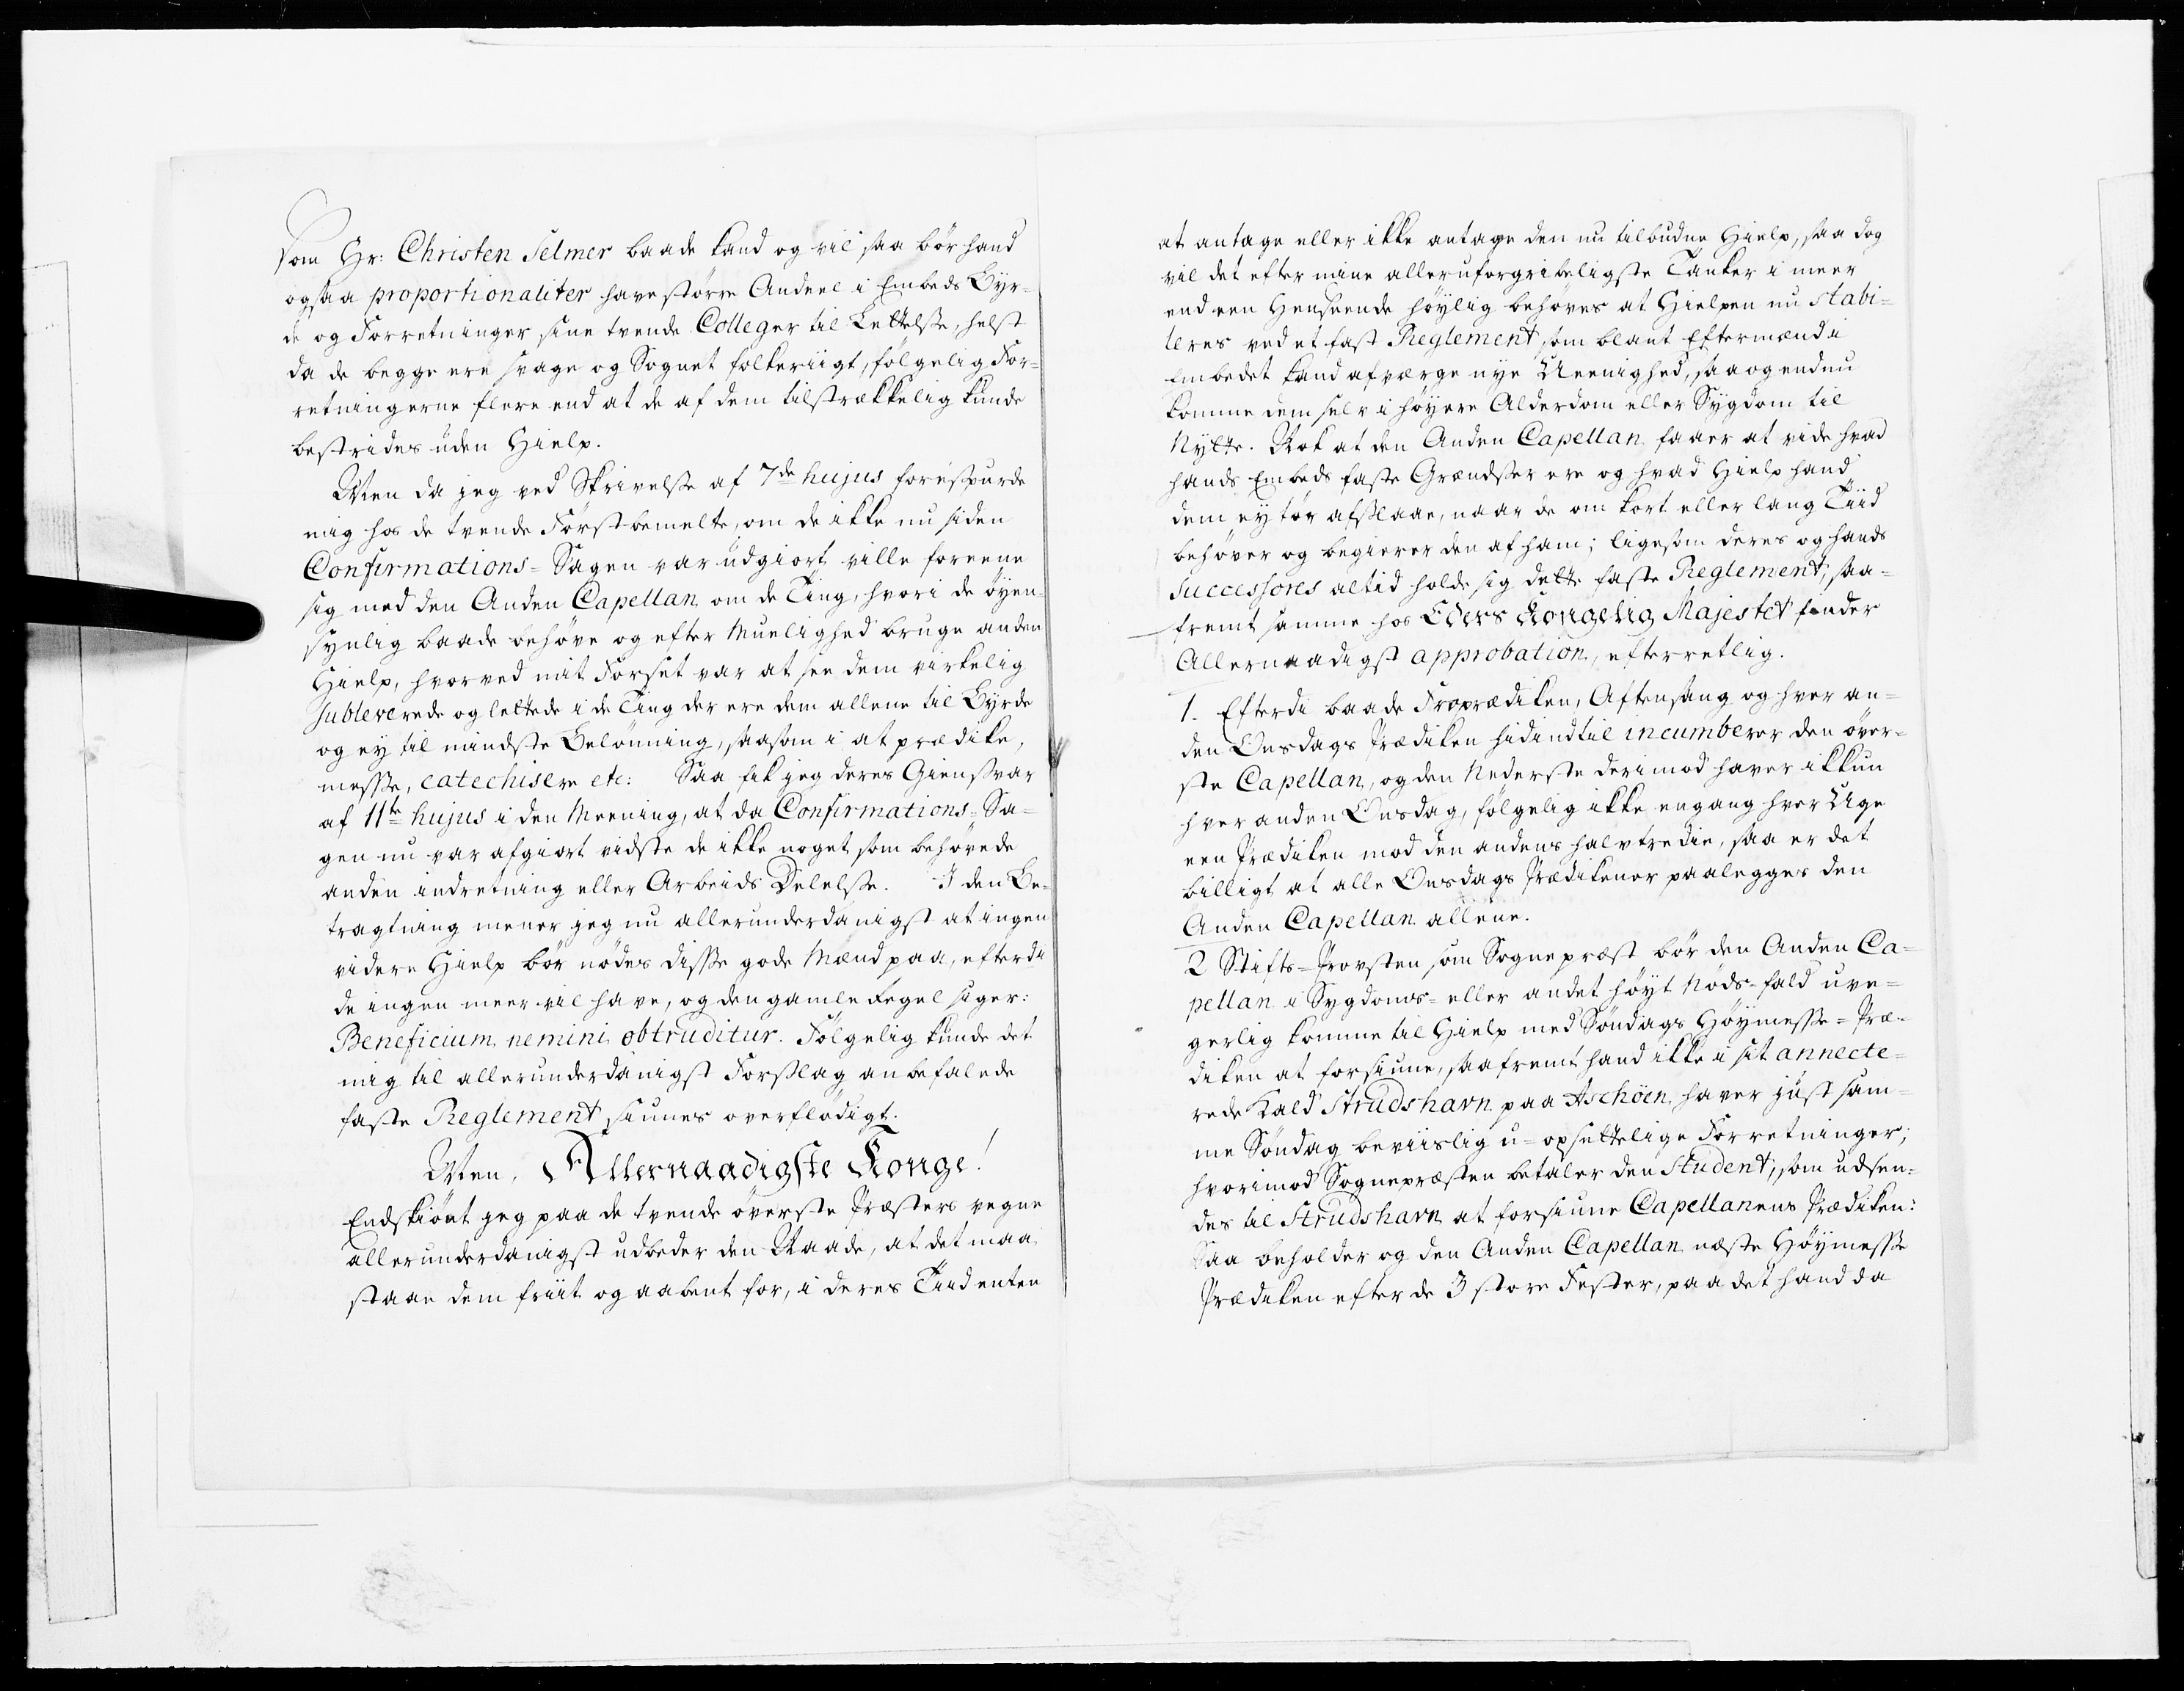 som Hr: Christen Selmer baade kand og vil saa bør hand
ogsaa proportionaliter have større Andeel i Embeds Byr-
de og Forretninger sine tvende Colleger til Lettelse, helst
da de begge ere svage og Sognet folkeriigt, følgelig For-
retningerne flere end at de af dem tilstrækkelig kunde
bestrides uden Hielp.
Men da jeg ved Skrivelse af 7de hujus forespurde
mig hos de tvende Førstbemelte, om de ikke nu siden
Confirmations-Sagen var udgiort ville foreene
sig med den Anden Capellan om de Ting, hvori de øyen-
synlig baade behøve og efter Muelighed bruge anden
Hielp, hvorved mit Forset var at see dem virkelig
subleverede og lettede i de Ting der ere dem allene til Byrde
og ey til mindste Belønning, saasom i at prædike,
messe, catechisere etc: Saa fik jeg deres Giensvar
af 11te hujus i den Meening, at da Confirmations-Sa-
gen nu var afgiort vidste de ikke noget som behøvede
anden indretning eller Arbeids Delelse. I den Be-
tragtning mener jeg nu allerunderdanigst at ingen
videre Hielp bør nødes disse gode Mænd paa, efterdi
de ingen meer vil have, og den gamle Regel siger:
Beneficium nemini obtruditur. Følgelig kunde det
mig til allerunderdanigst Forslag anbefalede
faste Reglement siunes overflødigt.
Men, Allernaadigste Konge!
Endskiønt jeg paa de tvende øverste Præsters vegne
allerunderdanigst udbeder den Naade, at det maa
staae dem friit og aabent for, i deres Tiid enten
at antage eller ikke antage den nu tilbudne Hielp, saa dog
vil det efter mine alleruforgribeligste Tanker i meer
end een Henseende høylig behøves at Hielpen nu stabi-
leres ved et fast Reglement, som blant Eftermænd i
Embedet kand afværge nye Ueenighed, saa og endnu
komme dem selv i høyere Alderdom eller Sygdom til
Nytte. Nok at den Anden Capellan faaer at vide hvad
hands Embeds faste Grændser ere og hvad Hielp hand
dem ey tør afslaae, naar de om kort eller lang Tiid
behøver og begierer den af ham; ligesom deres og hands
Successores altid holde sig dette faste Reglement, saa-
fremt samme hos Eders Kongelig Majestet finder
Allernaadigst approbation, efterretlig.
1. Efterdi baade Froprædiken, Aftensang og hver an-
den Onsdags Prædiken hidindtil incumberer den øver-
ste Capellan, og den Nederste derimod haver ikkun
hver anden Onsdag, følgelig ikke engang hver Uge
een Prædiken mod den andens halvtredie, saa er det
billigt at alle Onsdags Prædikener paalegges den
Anden Capellan allene.
2 Stifts-Provsten som Sognepræst bør den Anden Ca-
pellan i Sygdoms- eller andet høyt Nøds-fald uve-
gerlig komme til Hielp med Søndags Høymesse-Præ-
diken at forsiune, saafremt hand ikke i sit annecte-
rede Kald Strudshavn paa Aschøen haver just sam-
me Søndag beviislig u-opsettelige Forretninger;
hvorimod Sognepræsten betaler den Student, som udsen-
des til Strudshavn at forsiune Capellanens Prædiken:
Saa beholder og den Anden Capellan næste Høymesse
Prædiken efter de 3 store Fester, paa det hand da